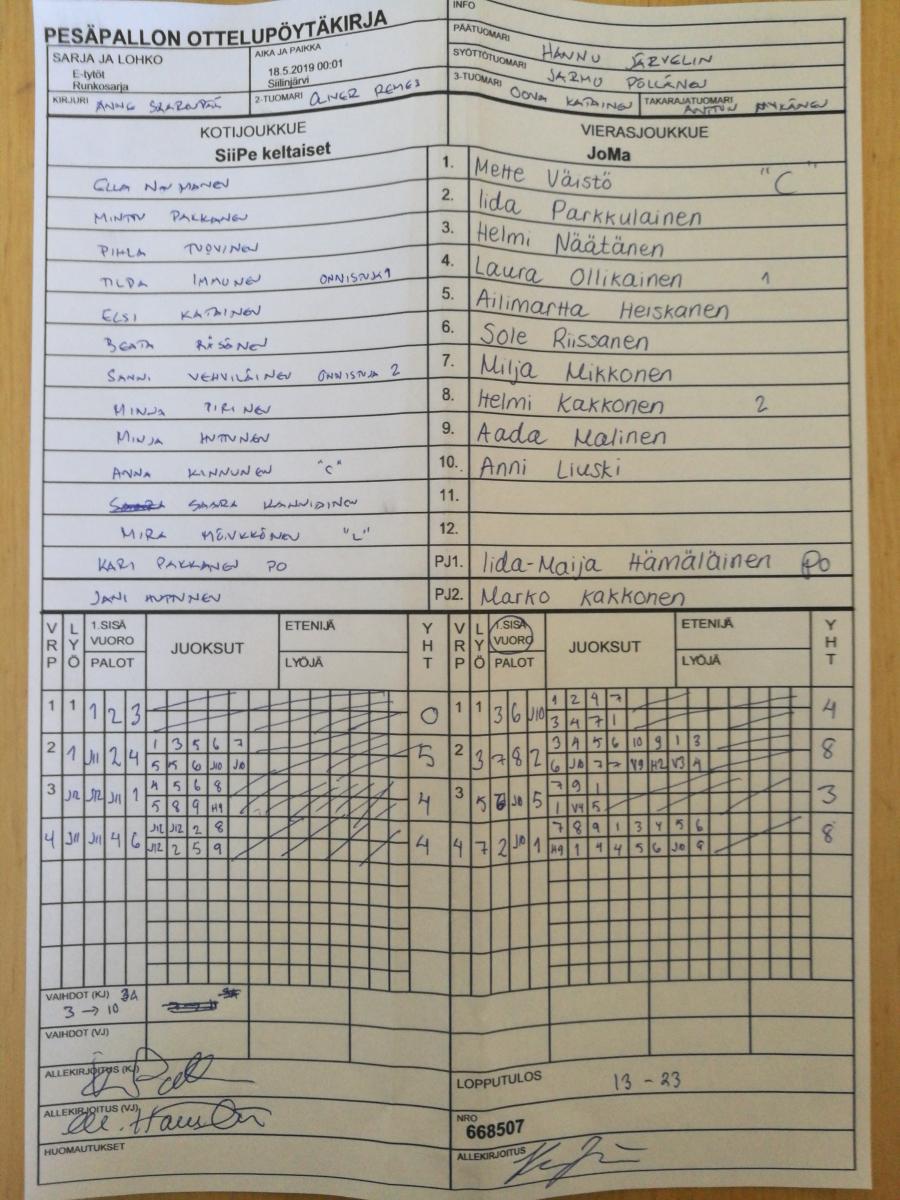 PESÄPALLON OTTELUPÖYTÄKIRJA
INFO
PÄÄTUOMARI
SARJA JA LOHKO
E-tytöt
Runkosarja
AIKA JA PAIKKA
18.5.2019 00:01
Siilinjärvi
SYÖTTÖTUOMARI HANNU JÄRVELIN
3-TUOMARI JARMO PÖLLÄNEN
KIRJURI ANNE
2-TUOMARI OLIVER REMES
OONA KATAINEN
TAKARAJATUOMARI ANTTON NYKÄNEN
KOTIJOUKKUE
VIERASJOUKKUE
SiiPe keltaiset
JoMa
ELLA 1. Mette Väistö "C"
MINTTU PAKKANEN 2. Iida Parkkulainen
PIHLA TUOVINEN 3. Helmi Näätänen
TILDA IMMONEN ONNISTUJA 1 4. Laura Ollikainen 1
ELSI KATAINEN 5. Ailimartta Heiskanen
BEATA RÄSÄNEN 6. Sole Riissanen
SANNI VEHVILÄINEN ONNISTUJA 2 7. Milja Mikkonen
MINJA PIRINEN 8. Helmi Kakkonen 2
MINJA HUTTUNEN 9. Aada Malinen
ANNA KINNUNEN "C" 10. Anni Liuski
SAARA 11.
MIRA "L" 12.
KARI PAKKANEN PO PJ1. Iida-Maija Hämäläinen PO
JANI HUTTUNEN PJ2. Marko Kakkonen
VRP LYÖ 1.SISÄ VUORO PALOT JUOKSUT ETENIJÄ LYÖJÄ YHT
VRP LYÖ 1.SISÄ VUORO PALOT JUOKSUT ETENIJÄ LYÖJÄ YHT
1 1 1 2 3 0 1 1 3 6 J10 1 2 4 7 4
3 4 7 1
2 1 J11 2 4 1 3 5 6 7 5 2 3 7 8 2 3 4 5 6 10 9 1 3 8
5 5 6 J10 J10 6 J10 7 7 V9 H2 V3 4
3 J12 J12 J11 1 4 5 6 8 4 3 5 J10 5 7 9 1 3
5 8 9 H9 1 V4 5
4 J11 J11 4 6 J12 J12 2 8 4 4 7 2 J10 1 7 8 9 1 3 4 5 6 8
J12 2 5 9 H9 1 4 4 5 6 J10 9
VAIHDOT (KJ) 3A
3 → 10
3A
VAIHDOT (VJ)
ALLEKIRJOITUS (KJ)
LOPPUTULOS 13 - 23
ALLEKIRJOITUS (VJ)
NRO
668507
HUOMAUTUKSET
ALLEKIRJOITUS